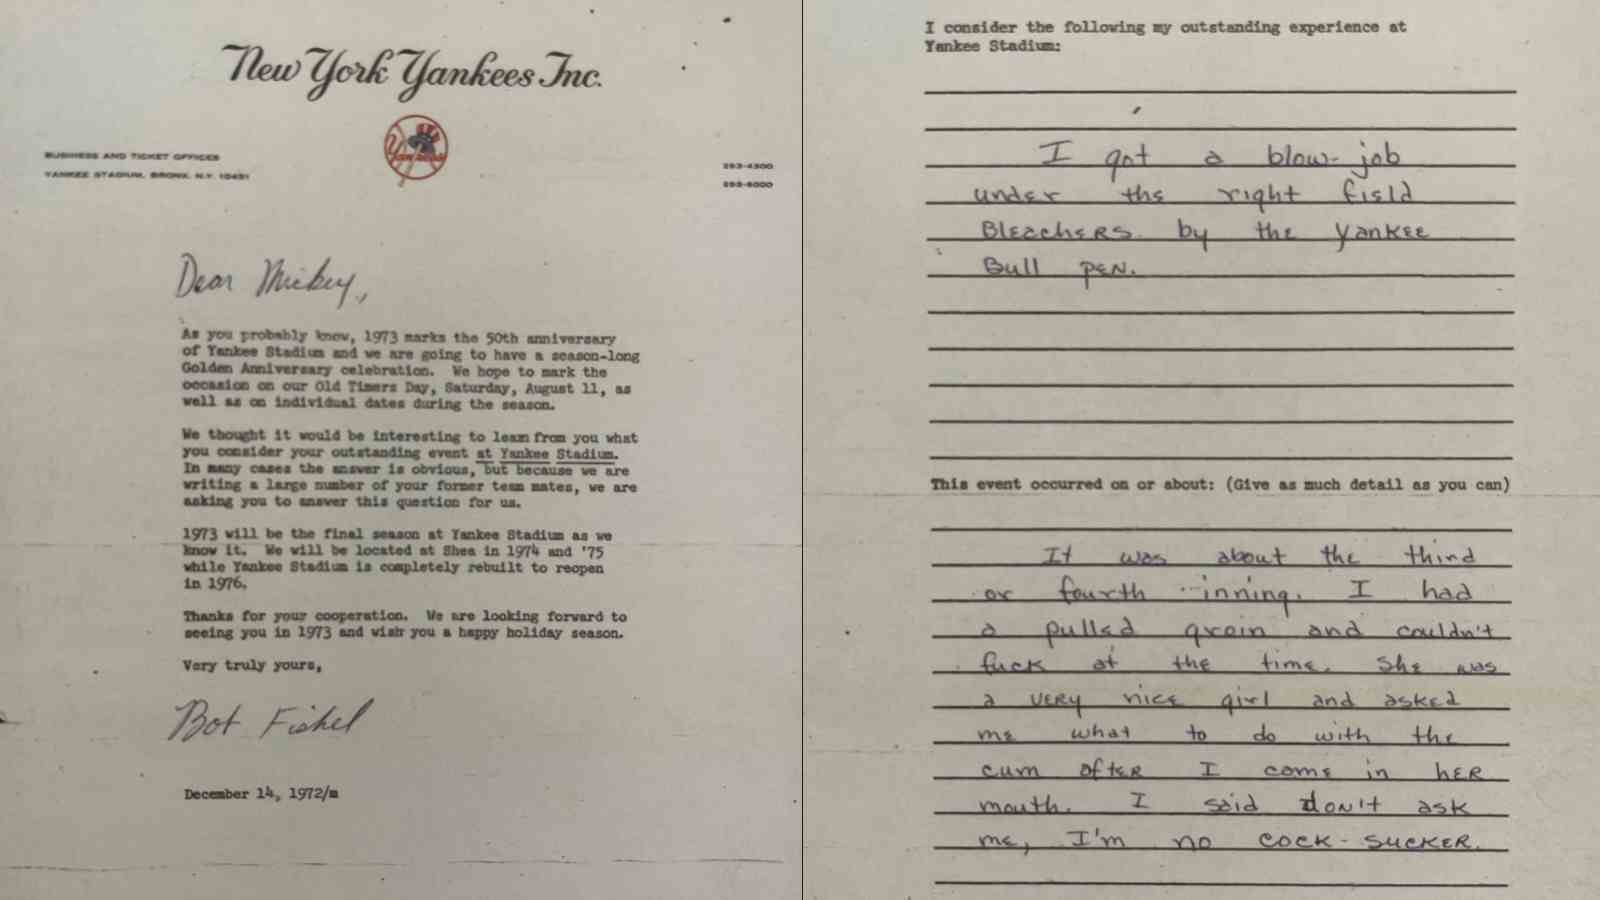 New York Yankees Inc.
BUSINESS AND TICKET OFFICES
YANKEE STADIUM, BRONX, N.Y. 10451
293-4300
293-6000
Dear Mickey,
As you probably know, 1973 marks the 50th anniversary
of Yankee Stadium and we are going to have a season-long
Golden Anniversary celebration. We hope to mark the
occasion on our Old Timers Day, Saturday, August 11, as
well as on individual dates during the season.
We thought it would be interesting to learn from you what
you consider your outstanding event at Yankee Stadium.
In many cases the answer is obvious, but because we are
writing a large number of your former team mates, we are
asking you to answer this question for us.
1973 will be the final season at Yankee Stadium as we
know it. We will be located at Shea in 1974 and '75
while Yankee Stadium is completely rebuilt to reopen
in 1976.
Thanks for your cooperation. We are looking forward to
seeing you in 1973 and wish you a happy holiday season.
Very truly yours,
Bob Fishel
December 14, 1972/m
I consider the following my outstanding experience at
Yankee Stadium:
I got a blow-job
under the right field
Bleachers by the Yankee
Bull pen.
This event occurred on or about: (Give as much detail as you can)
It was about the third
or fourth inning. I had
a pulled groin and couldn't
fuck at the time. She was
a very nice girl and asked
me what to do with the
cum after I come in her
mouth. I said don't ask
me, I'm no cock-sucker.